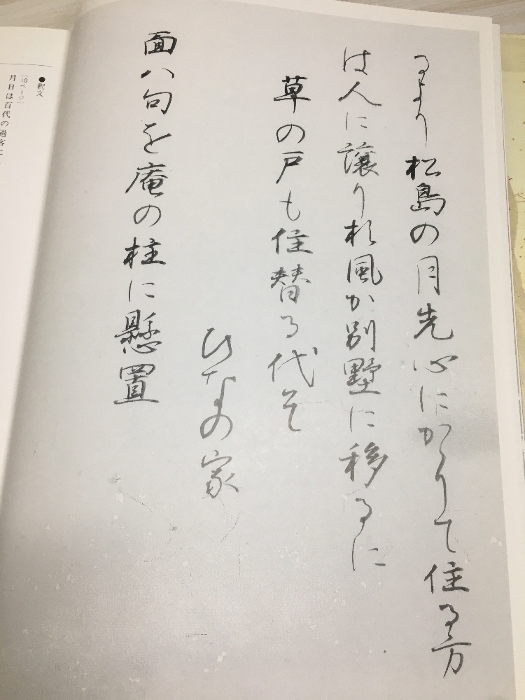 るより松島の月先心にかゝりて住る方
は人に譲り杉風か別墅に移るに
草の戸も住替る代そ
ひなの家
面八句を庵の柱に懸置
●釈文
月日は百代の過客に